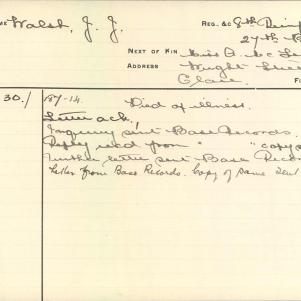 ME Walsh, J. J. REG. &C 8th Rein
27th B
NEXT OF KIN Miss A. Mc
ADDRESS Wright Stree
Clare
30./ 187-14. Died of illness.
Letter ack.
Inquiry sent Base Records.
Reply recd from " " copy s
Further letter sent Base Recor
Letter from Base Records. Copy of same sent